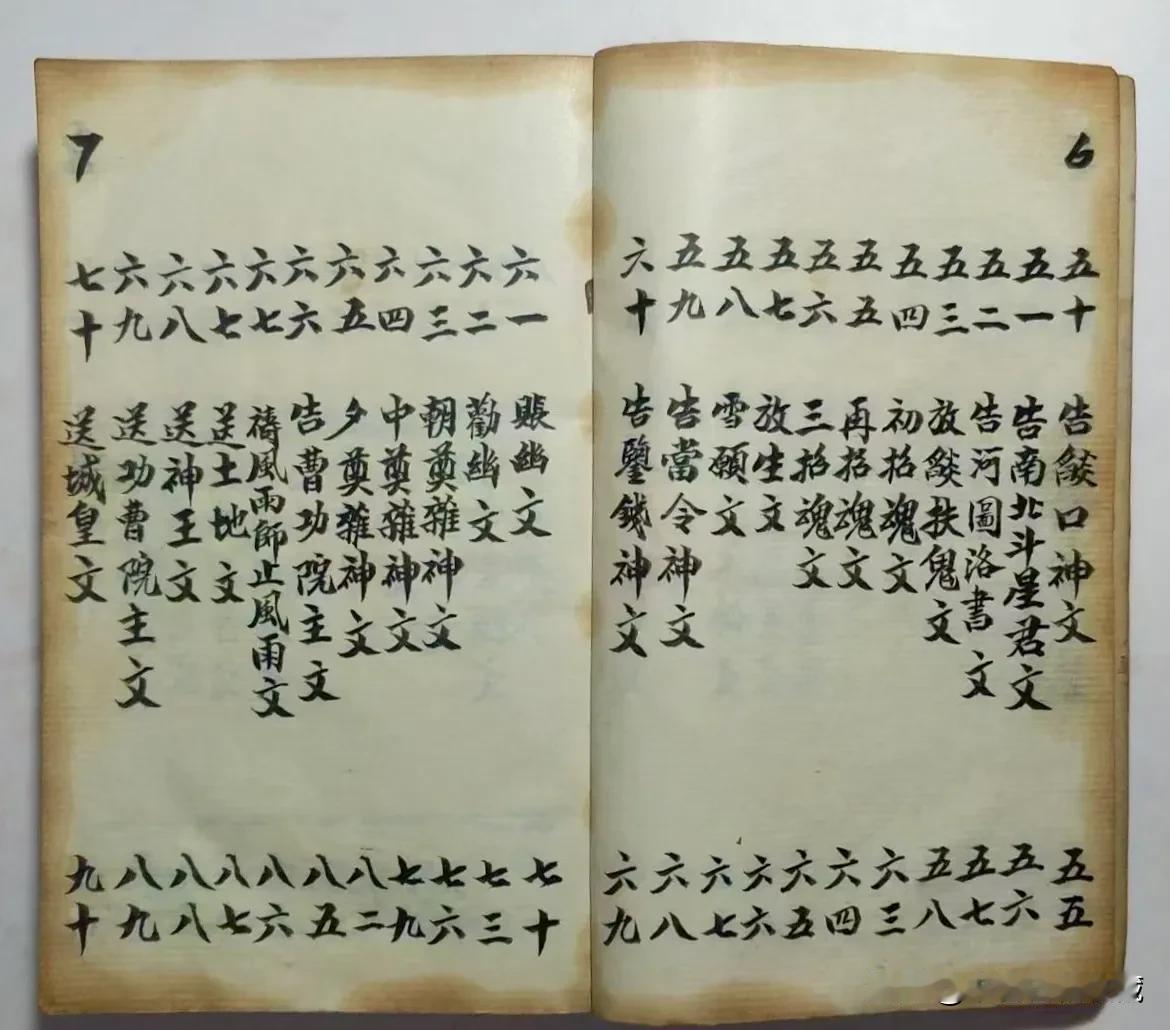 6
五十 告燄口神文 五五
五一 告南北斗星君文 五六
五二 告河圖洛書文 五七
五三 放燄扶鬼文 五八
五四 初招魂文 六三
五五 再招魂文 六四
五六 三招魂文 六五
五七 放生文 六六
五八 雪願文 六七
五九 告當令神文 六八
六十 告鑒錢神文 六九
7
六一 賬幽文 七十
六二 勸幽文 七三
六三 朝奠雜神文 七六
六四 中奠雜神文 七九
六五 夕奠雜神文 八二
六六 告曹功院主文 八五
六七 禱風雨師止風雨文 八六
六七 送土地文 八七
六八 送神王文 八八
六九 送功曹院主文 八九
七十 送城皇文 九十